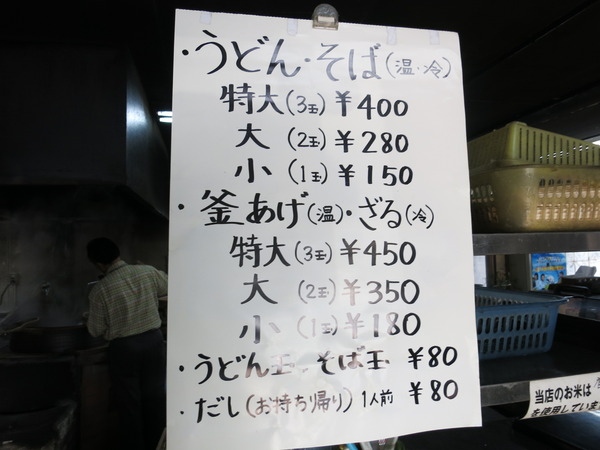 ・うどん・そば(温・冷)
特大(3玉)￥400
大(2玉)￥280
小(1玉)￥150
・釜あげ(温)・ざる(冷)
特大(3玉)￥450
大(2玉)￥350
小(1玉)￥180
・うどん玉、そば玉 ￥80
・だし(お持ち帰り)1人前 ￥80
当店のお米は
を使用していま